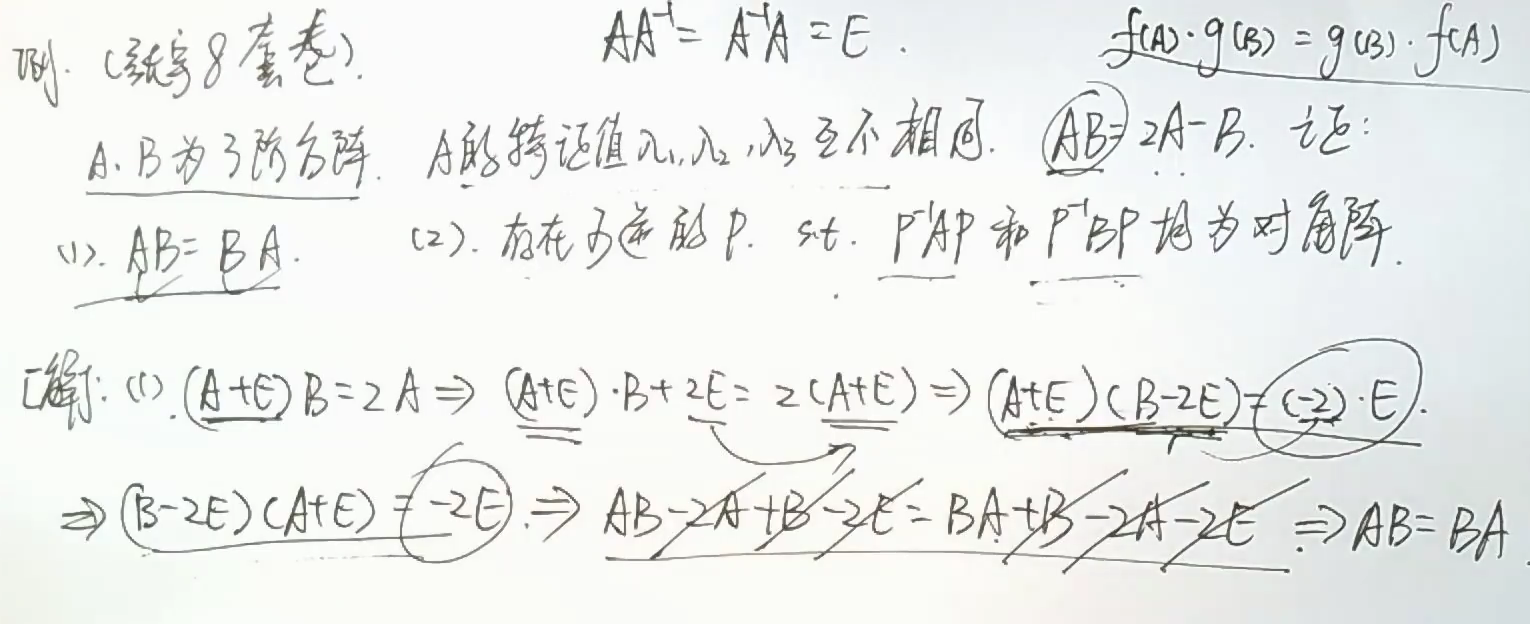 例. (张宇8套卷). AA⁻¹ = A⁻¹A = E. f(A)·g(B) = g(B)·f(A)
A、B为3阶方阵. A的特征值λ₁,λ₂,λ₃互不相同. AB=2A-B. 证:
(1). AB=BA. (2). 存在可逆的P. s.t. P⁻¹AP 和 P⁻¹BP 均为对角阵.
[解]: (1). (A+E)B=2A ⇒ (A+E)·B+2E=2(A+E) ⇒ (A+E)(B-2E)=(-2)·E.
⇒ (B-2E)(A+E)=-2E. ⇒ AB-2A+B-2E=BA+B-2A-2E ⇒ AB=BA.